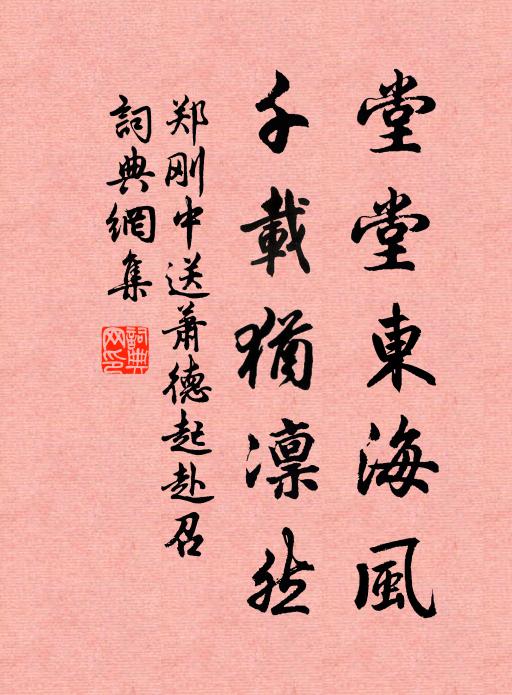 堂堂東海風
千載猶凛然
郑刚中送蕭德起赴召
詞典網集
詞典网印